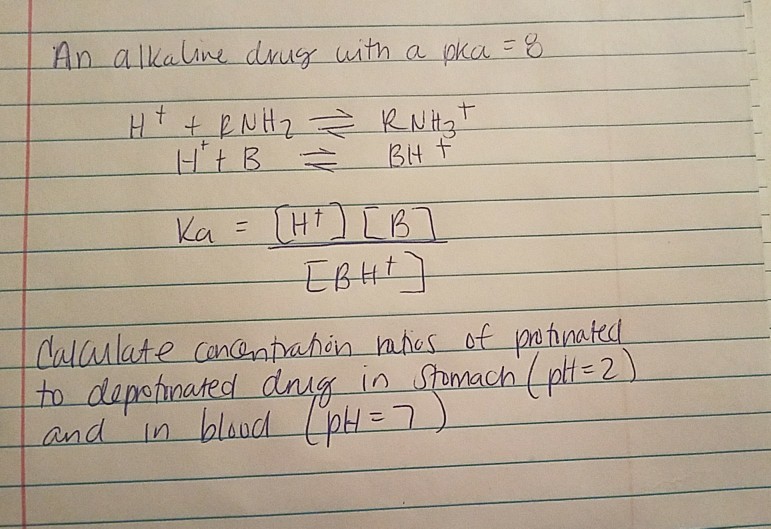 An alkaline drug with a pka = 8
H⁺ + RNH₂ ⇌ RNH₃⁺
H⁺ + B ⇌ BH⁺
Ka = [H⁺] [B]
[BH⁺]
Calculate concentration ratios of protinated
to deprotinated drug in stomach (pH=2)
and in blood (pH=7)